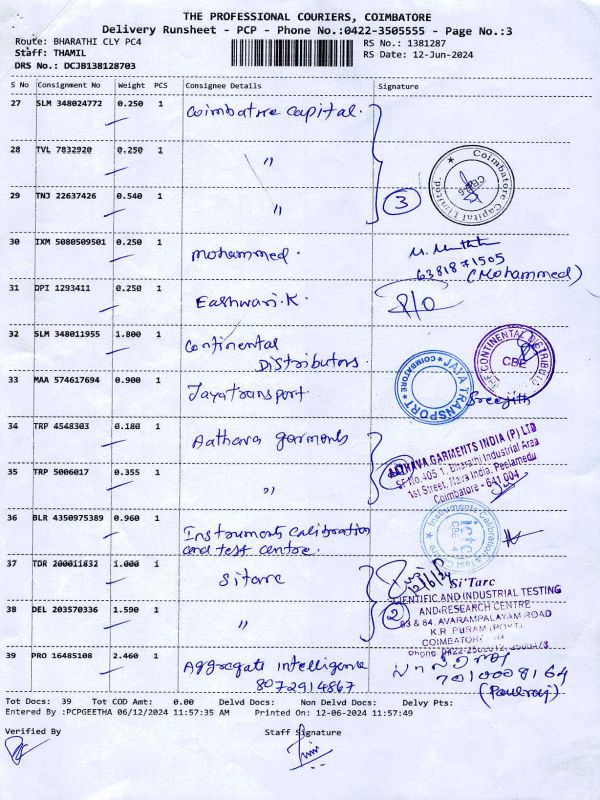 THE PROFESSIONAL COURIERS, COIMBATORE
Delivery Runsheet - PCP - Phone No.:0422-3505555 - Page No.:3
Route: BHARATHI CLY PC4
RS No.: 1381287
Staff: THAMIL
RS Date: 12-Jun-2024
DRS No.: DCJB138128703
S No Consignment No Weight PCS Consignee Details Signature
27 SLM 348024772 0.250 1 Coimbatore Capital.
28 TVL 7832920 0.250 1 "
29 TNJ 22637426 0.540 1 "
3
Coimbatore Capital Limited
CBE-6
30 IXM 5080509501 0.250 1 Mohammed.
63818 71505
(Mohammed)
31 DPI 1293411 0.250 1 Eashwari.K. P/O
32 SLM 348011955 1.800 1 Continental
Distributors.
CONTINENTAL DISTRIBUT
CBE
33 MAA 574617694 0.900 1 Jayatransport
JAYA TRANSPORT
COIMBATORE
Sreejith
34 TRP 4548303 0.180 1 Aathava garments
35 TRP 5006017 0.355 1 "
AATHAVA GARMENTS INDIA (P) LTD
SF No.405 1, Bharathi Industrial Area
1st Street, Nava India, Peelamedu
Coimbatore - 641 004
36 BLR 4350975389 0.960 1 Instruments Calibration
and test centre.
Instruments Calibration
ictc
CBE 4
37 TDR 200011832 1.000 1 Sitarc
12/6/24
38 DEL 203570336 1.590 1 "
2
Si'Tarc
SCIENTIFIC AND INDUSTRIAL TESTING
AND RESEARCH CENTRE
83 & 84, AVARAMPALAYAM ROAD
K.R. PURAM (POST)
COIMBATORE
39 PRO 16485108 2.460 1 Aggregate intelligence
8072914867
7010008164
(Paulraj)
Tot Docs: 39 Tot COD Amt: 0.00 Delvd Docs: Non Delvd Docs: Delvy Pts:
Entered By :PCPGEETHA 06/12/2024 11:57:35 AM Printed On: 12-06-2024 11:57:49
Verified By Staff Signature